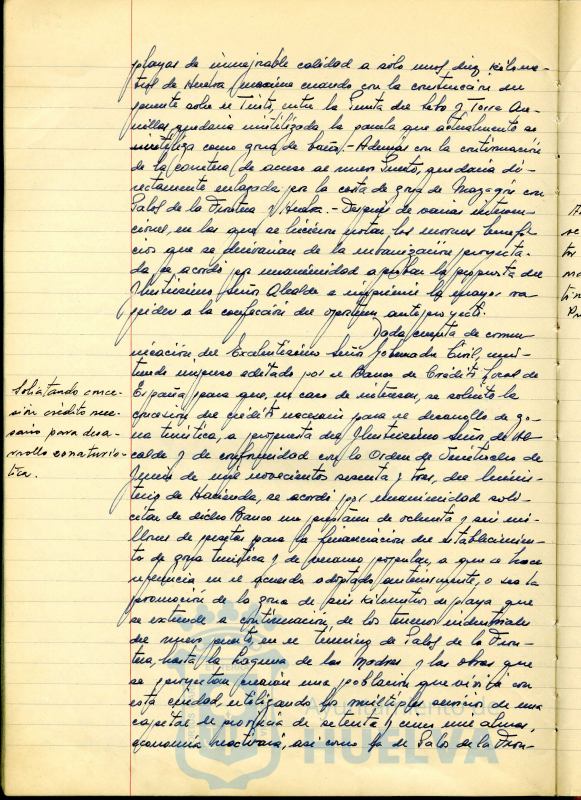 playas de inmejorable calidad a solo unos diez kilome-
tros de Huelva, maxime cuando con la construccion del
puente sobre el Tinto, entre la Punta del Sebo y Torre Are-
nillas, quedaria inutilizada, la parcela que actualmente se
utiliza como zona de baño.- Además con la continuación
de la carretera de acceso al nuevo Puerto, quedaria di-
rectamente enlazada por la costa de zona de Mazagón con
Palos de la Frontera y Huelva.- Después de varias interven-
ciones, en las que se hicieron notar, los enormes benefi-
cios que se derivarian de la urbanización proyecta-
da se acordó por unanimidad aprobar la propuesta del
Ilustrisimo Señor Alcalde e imprimir la mayor ra-
pidez a la confección del oportuno anteproyecto.
Dada cuenta de comu-
nicación, del Excelentisimo Señor Gobernador Civil, remi-
tiendo impreso editado por el Banco de Crédito Local de
España, para que, en caso de interesar, se solicite la
concesion del crédito necesario para el desarrollo de zo-
na turistica, a propuesta del Ilustrisimo Señor Al-
calde y de conformidad con la Orden de veintiocho de
Junio de mil novecientos sesenta y tres, del Minis-
terio de Hacienda, se acordó por unanimidad soli-
citar de dicho Banco un prestamo de ochenta y seis mi-
llones de pesetas para la financiación del establecimien-
to de zona turistica y de veraneo popular, a que se hace
referencia en el acuerdo adoptado anteriormente, o sea la
promoción de la zona de seis kilometros de playa que
se extiende a continuación, de los terrenos industriales
del nuevo puerto en el término de Palos de la Fron-
tera, hasta la Laguna de las Madres y las obras que
se proyectan, crearán una población que vivirá con
esta ciudad, utilizando los multiples servicios de una
capital de provincia de setenta y cinco mil almas,
economia reactivará, asi como la de Palos de la Fron-
Solicitando conce-
sión crédito nece-
sario para desa-
rrollo zona turís-
tica.
Ayuntamiento de
HUELVA